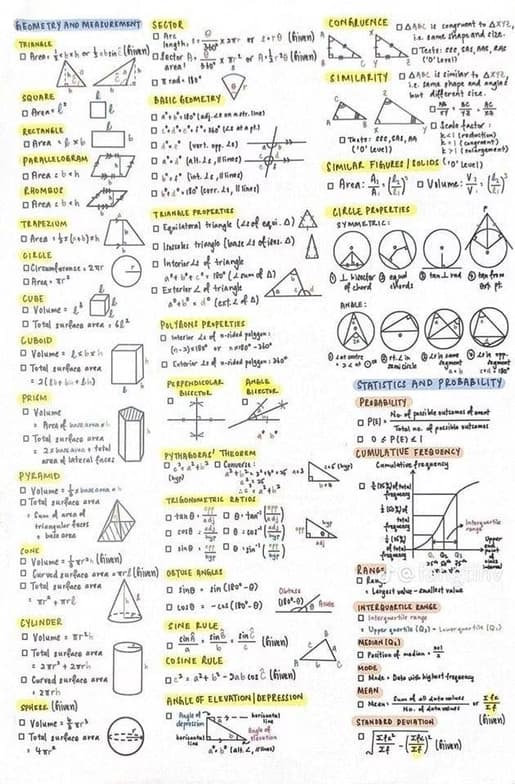 GEOMETRY AND MEASUREMENT
TRIANGLE
Area = ½ × b × h or ½ab sin C (Given)
SQUARE
Area = l²
RECTANGLE
Area = l × b
PARALLELOGRAM
Area = b × h
RHOMBUS
Area = b × h
TRAPEZIUM
Area = ½ × (a+b) × h
CIRCLE
Circumference = 2πr
Area = πr²
CUBE
Volume = l³
Total surface area = 6l²
CUBOID
Volume = l × b × h
Total surface area
= 2(lb + bh + lh)
PRISM
Volume
= Area of base area × h
Total surface area
= 2 × base area + total
area of lateral faces
PYRAMID
Volume = ⅓ × base area × h
Total surface area
= Sum of area of
triangular faces
+ base area
CONE
Volume = ⅓πr²h (Given)
Curved surface area = πrl (Given)
Total surface area
= πr² + πrl
CYLINDER
Volume = πr²h
Total surface area
= 2πr² + 2πrh
Curved surface area
= 2πrh
SPHERE (Given)
Volume = 4/3 πr³
Total surface area
= 4πr²
SECTOR
Arc
length, s = θ/360° × 2πr or s = rθ (Given)
Sector area, A = θ/360° × πr² or A = ½r²θ (Given)
π rad = 180°
BASIC GEOMETRY
a° + b° = 180° (adj. ∠s on a str. line)
(vert. opp. ∠s)
(alt. ∠s, // lines)
(int. ∠s, // lines)
(corr. ∠s, // lines)
TRIANGLE PROPERTIES
Equilateral triangle (∠s of equi. Δ)
Isosceles triangle (base ∠s of isos. Δ)
Interior ∠s of triangle
a° + b° + c° = 180° (∠ sum of Δ)
Exterior ∠ of triangle
a° + b° = d° (ext. ∠ of Δ)
POLYGONS PROPERTIES
Interior ∠s of n-sided polygon:
(n-2) × 180° or n × 180° - 360°
Exterior ∠s of n-sided polygon: 360°
PERPENDICULAR BISECTOR
ANGLE BISECTOR
PYTHAGORAS' THEOREM
c² = a² + b²
(hyp)
Converse:
TRIGONOMETRIC RATIOS
tan θ = opp/adj
θ = tan⁻¹(opp/adj)
cos θ = adj/hyp
θ = cos⁻¹(adj/hyp)
sin θ = opp/hyp
θ = sin⁻¹(opp/hyp)
OBTUSE ANGLES
sin θ = sin(180° - θ)
cos θ = -cos(180° - θ)
Obtuse
Acute
SINE RULE
sin A/a = sin B/b = sin C/c (Given)
COSINE RULE
c² = a² + b² - 2ab cos C (Given)
ANGLE OF ELEVATION/DEPRESSION
Angle of depression
horizontal line
horizontal line
Angle of elevation
a° = b° (alt. ∠, // lines)
CONGRUENCE
ΔABC is congruent to ΔXYZ,
i.e. same shape and size.
Tests: SSS, SAS, AAS, RHS
('O' Level)
SIMILARITY
ΔABC is similar to ΔXYZ,
i.e. same shape and angles
but different size.
Scale factor:
k<1 (reduction)
k=1 (congruent)
k>1 (enlargement)
Tests: SSS, SAS, AA
('O' Level)
SIMILAR FIGURES / SOLIDS ('O' Level)
Area: A₁/A₂ = (l₁/l₂)²
Volume: V₁/V₂ = (l₁/l₂)³
CIRCLE PROPERTIES
SYMMETRIC:
① ⊥ bisector of chord
② equal chords
③ tan ⊥ rad
④ tan from ext. pt.
ANGLE:
② rt. ∠ in semicircle
③ ∠s in same segment
④ ∠s in opp. segment
STATISTICS AND PROBABILITY
PROBABILITY
P(E) = No. of possible outcomes of event / Total no. of possible outcomes
0 ≤ P(E) ≤ 1
CUMULATIVE FREQUENCY
Cumulative frequency
Interquartile range
Q₁ Q₂ Q₃
RANGE
= Largest value - smallest value
INTERQUARTILE RANGE
Interquartile range
= Upper quartile (Q₃) - Lower quartile (Q₁)
MEDIAN (Q₂)
Position of median = n+1/2
MODE
Mode = Data with highest frequency
MEAN
Mean = Sum of all data values / No. of data values or Σfx/Σf (Given)
STANDARD DEVIATION
√(Σfx²/Σf - (Σfx/Σf)²) (Given)